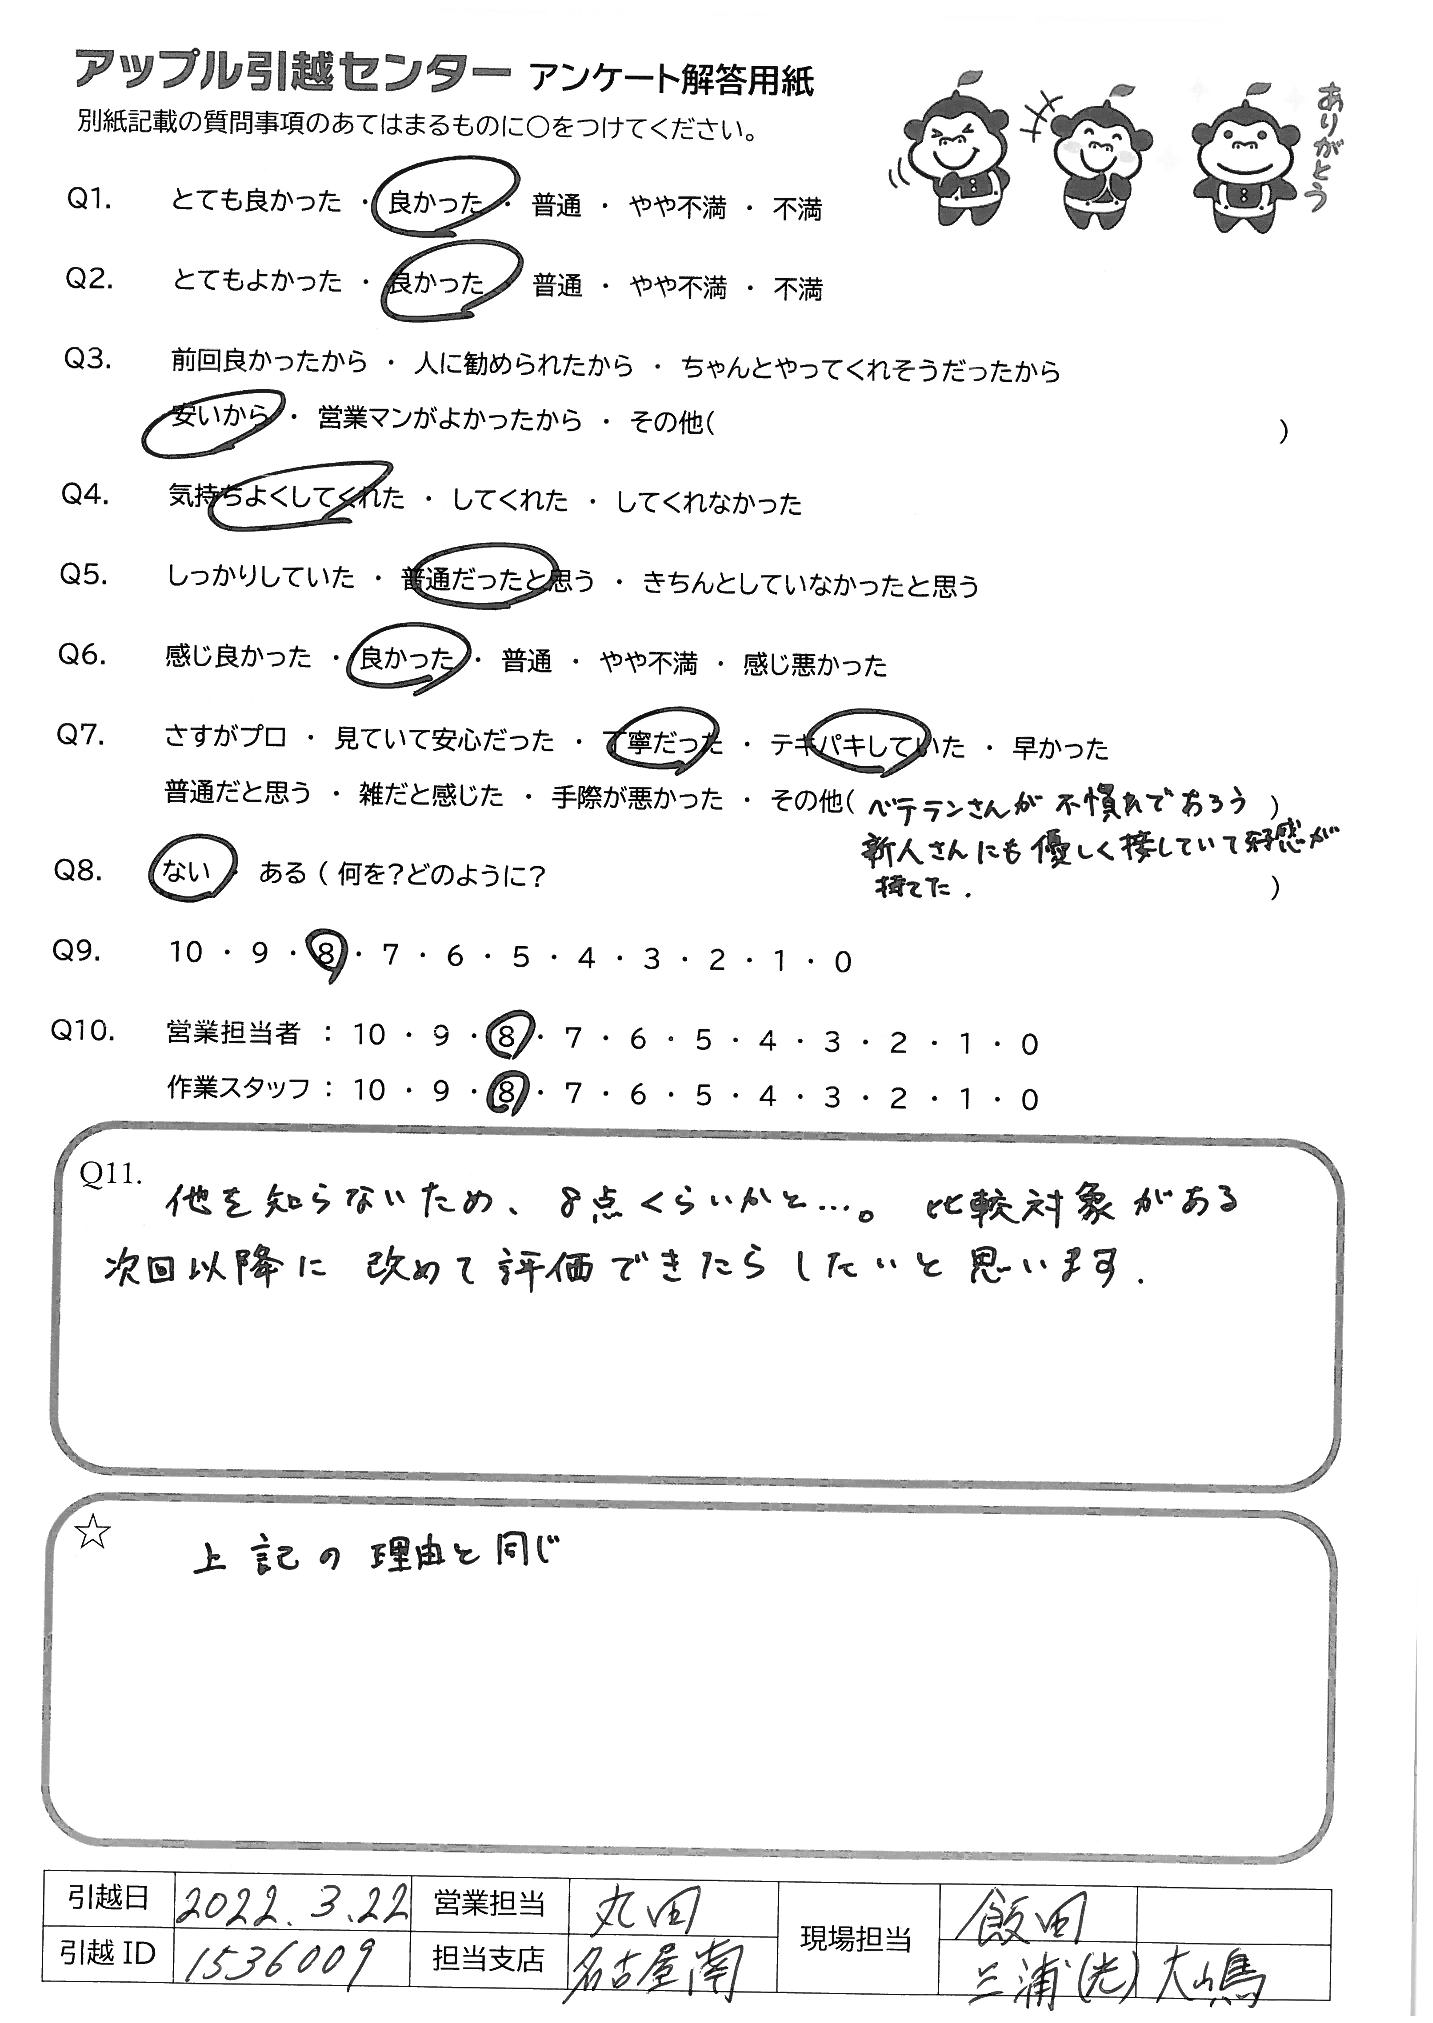 アップル引越センター アンケート解答用紙
別紙記載の質問事項のあてはまるものに○をつけてください。
ありがとう
Q1. とても良かった ・ 良かった ・ 普通 ・ やや不満 ・ 不満
Q2. とてもよかった ・ 良かった ・ 普通 ・ やや不満 ・ 不満
Q3. 前回良かったから ・ 人に勧められたから ・ ちゃんとやってくれそうだったから
安いから ・ 営業マンがよかったから ・ その他( )
Q4. 気持ちよくしてくれた ・ してくれた ・ してくれなかった
Q5. しっかりしていた ・ 普通だったと思う ・ きちんとしていなかったと思う
Q6. 感じ良かった ・ 良かった ・ 普通 ・ やや不満 ・ 感じ悪かった
Q7. さすがプロ ・ 見ていて安心だった ・ 丁寧だった ・ テキパキしていた ・ 早かった
普通だと思う ・ 雑だと感じた ・ 手際が悪かった ・ その他( ベテランさんが不慣れであろう )
新人さんにも優しく接していて好感が
持てた.
Q8. ない ・ ある ( 何を?どのように? )
Q9. 10 ・ 9 ・ 8 ・ 7 ・ 6 ・ 5 ・ 4 ・ 3 ・ 2 ・ 1 ・ 0
Q10. 営業担当者 : 10 ・ 9 ・ 8 ・ 7 ・ 6 ・ 5 ・ 4 ・ 3 ・ 2 ・ 1 ・ 0
作業スタッフ : 10 ・ 9 ・ 8 ・ 7 ・ 6 ・ 5 ・ 4 ・ 3 ・ 2 ・ 1 ・ 0
Q11. 他を知らないため、8点くらいかと…。比較対象がある
次回以降に 改めて評価できたらしたいと思います.
☆ 上記の理由と同じ
引越日 2022.3.22 営業担当 丸田 現場担当 飯田
引越 ID 1536009 担当支店 名古屋南 三浦(光) 大嶋